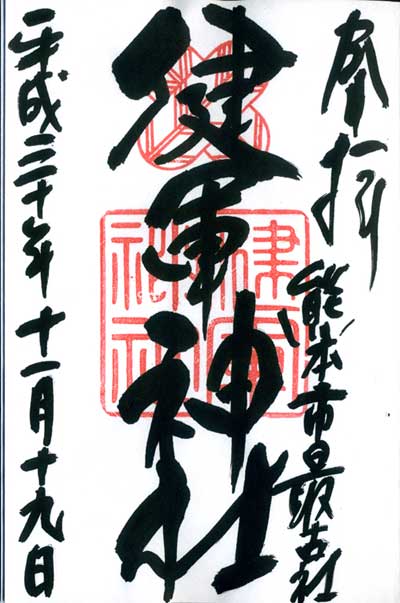 奉拝
熊本市最古社
健軍神社
健軍神社
平成三十年十一月十九日